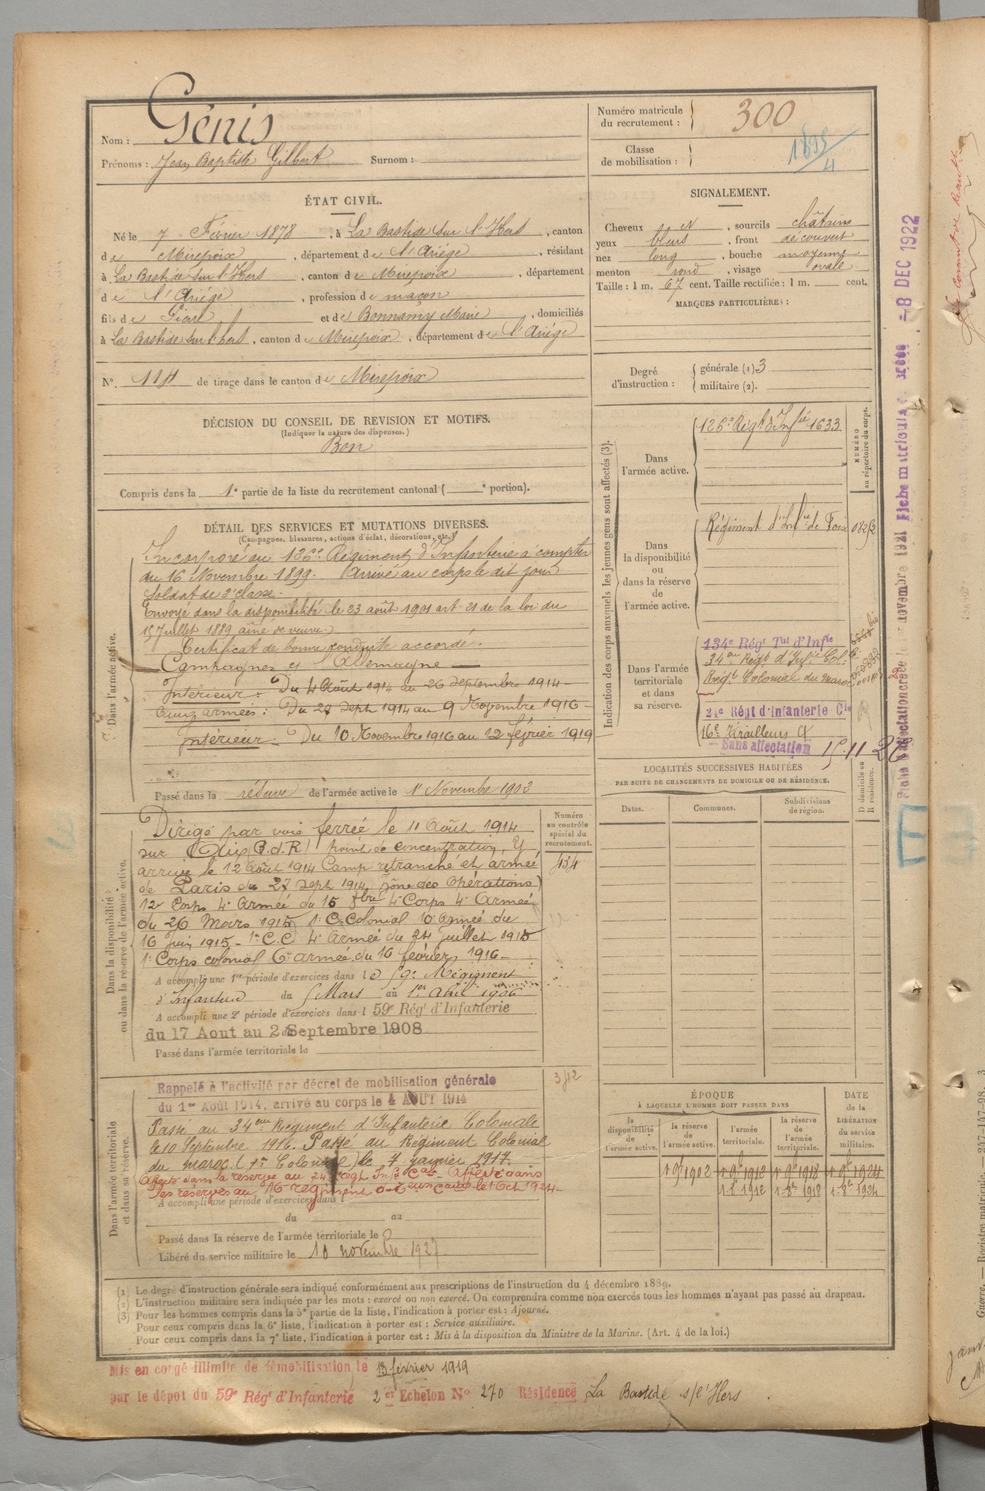 Nom : Génis
Prénoms : Jean Baptiste Gilbert Surnom :
Numéro matricule du recrutement : 300
Classe de mobilisation :
ÉTAT CIVIL.
Né le 7 Février 1878, à La Bastide sur l'Hers, canton
de Mirepoix, département de l'Ariège, résidant
à La Bastide sur l'Hers, canton de Mirepoix, département
de l'Ariège, profession de maçon
fils de et de Bonnamy Marie, domiciliés
à La Bastide sur l'hers, canton de Mirepoix, département de l'Ariège
N°. 114 de tirage dans le canton de Mirepoix
SIGNALEMENT.
Cheveux et, sourcils châtains
yeux bleus, front découvert
nez long, bouche moyenne
menton rond, visage ovale
Taille : 1 m. 67 cent. Taille rectifiée : 1 m. cent.
MARQUES PARTICULIÈRES :
Degré d'instruction : générale (1) 3
militaire (2).
DÉCISION DU CONSEIL DE REVISION ET MOTIFS.
(Indiquer la nature des dispenses.)
Bon
Compris dans la 1e partie de la liste du recrutement cantonal ( e portion).
DÉTAIL DES SERVICES ET MUTATIONS DIVERSES.
(Campagnes, blessures, actions d'éclat, décorations, etc.)
Dans l'armée active.
Incorporé au 126e Régiment d'Infanterie à compter
du 16 Novembre 1899. Arrivé au corps le dit jour
Soldat de 2e classe.
Envoyé dans la disponibilité le 23 août 1901 art. 21 de la loi du
15 Juillet 1889 aîné de veuve.
Certificat de bonne conduite accordé.
Campagnes et Allemagne
Intérieur : Du 4 Août 1914 au 26 Septembre 1914
Aux armées : Du 27 Sept 1914 au 9 Novembre 1916
Intérieur. Du 10 Novembre 1916 au 12 février 1919
Passé dans la réserve de l'armée active le 1er Novembre 1903
Dans la disponibilité ou dans la réserve de l'armée active.
Dirigé par voie ferrée le 11 Août 1914
sur (B.d.R) point de concentration, y
arrivé le 12 Août 1914 Camp retranché et armée
de Paris du 27 Sept 1914 (zône des Opérations)
12 Corps 4e Armée du 15 4e Corps 4e Armée
du 26 Mars 1915 1e C. Colonial 10 armée du
16 Juin 1915 - 1er C.C 4e Armée du 24 Juillet 1915
1e Corps colonial 6e armée du 16 février 1916
A accompli une 1re période d'exercices dans le 59e Régiment
d'Infanterie du 5 Mars au 1er Avril 1906
A accompli une 2e période d'exercices dans l 59e Régt d'Infanterie
du 17 Aout au 2 Septembre 1908
Passé dans l'armée territoriale le
Numéro au contrôle spécial du recrutement.
434
342
Dans l'armée territoriale et dans sa réserve.
Rappelé à l'activité par décret de mobilisation générale
du 1er Août 1914, arrivé au corps le 4 AOUT 1914
Passé au 34eme Régiment d'Infanterie Coloniale
le 10 Septembre 1916. Passé au Régiment Colonial
du Maroc (1er Colonial) le 7 janvier 1917.
Affecté dans la réserve au 24 Regt In. Affecté dans
ses réserves au 16 régiment
A accompli une période d'exercices dans l
du au
Passé dans la réserve de l'armée territoriale le
Libéré du service militaire le 10 novembre 1927
Indication des corps auxquels les jeunes gens sont affectés (3).
Dans l'armée active.
126e Régt d'Infie 1633
NUMÉRO au répertoire du corps.
Dans la disponibilité ou dans la réserve de l'armée active.
Régiment d'Infie de Foix
Dans l'armée territoriale et dans sa réserve.
134e Régt Tal d'Infie
34me Régt d'Infie Col.
Régt Colonial du Maroc
21e Régt d'Infanterie Cle
16e Tirailleurs
Sans affectation
LOCALITÉS SUCCESSIVES HABITÉES
PAR SUITE DE CHANGEMENTS DE DOMICILE OU DE RÉSIDENCE.
Dates. Communes. Subdivisions de région. D domicile ou R résidence.
ÉPOQUE
À LAQUELLE L'HOMME DOIT PASSER DANS
la disponibilité de l'armée active. la réserve de l'armée active. l'armée territoriale. la réserve de l'armée territoriale. DATE de la LIBÉRATION du service militaire.
(1) Le degré d'instruction générale sera indiqué conformément aux prescriptions de l'instruction du 4 décembre 1889.
(2) L'instruction militaire sera indiquée par les mots : exercé ou non exercé. On comprendra comme non exercés tous les hommes n'ayant pas passé au drapeau.
(3) Pour les hommes compris dans la 5e partie de la liste, l'indication à porter est : Ajourné.
Pour ceux compris dans la 6e liste, l'indication à porter est : Service auxiliaire.
Pour ceux compris dans la 7e liste, l'indication à porter est : Mis à la disposition du Ministre de la Marine. (Art. 4 de la loi.)
Mis en congé illimité de démobilisation le 13 février 1919
par le dépôt du 59e Régt d'Infanterie 2er Echelon N° 270 Résidence La Bastide s/l'Hers
8 DEC 1922